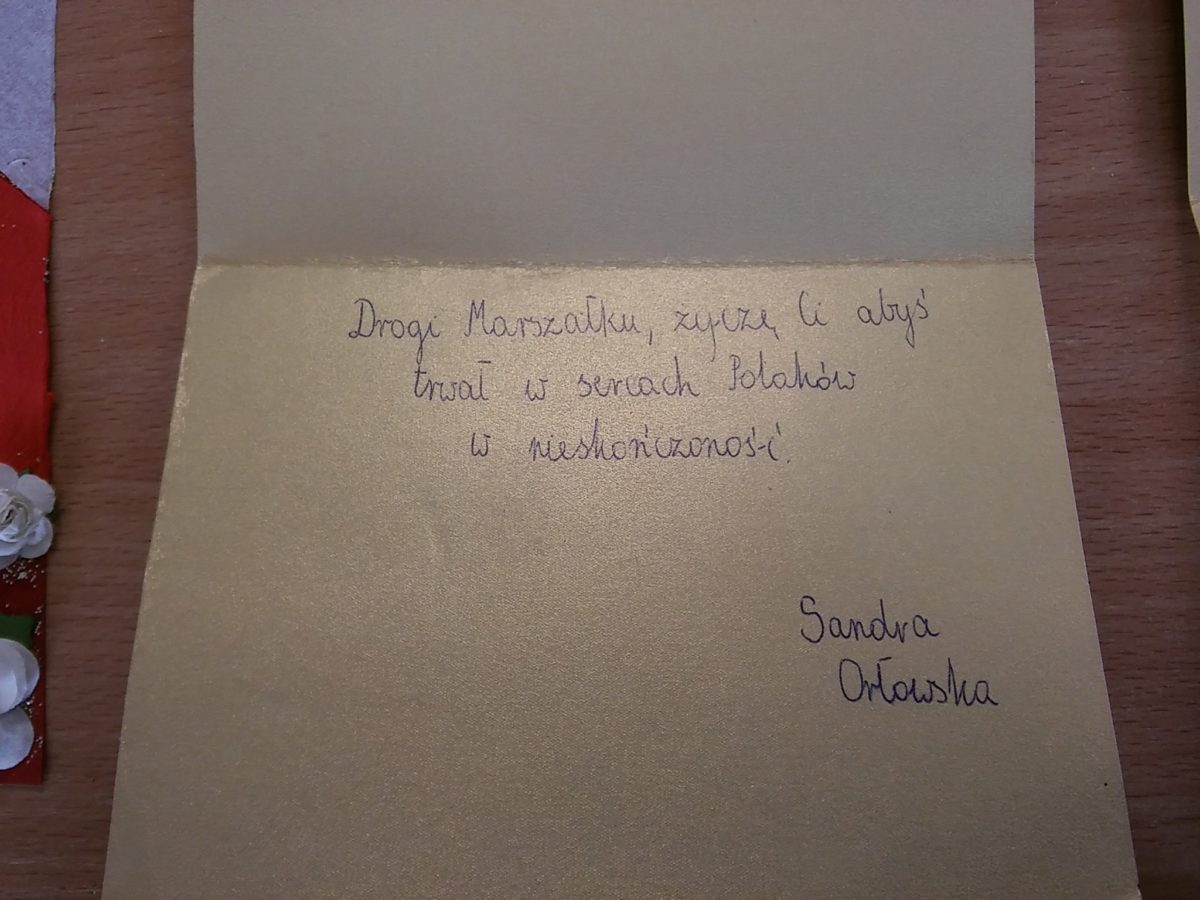 Drogi Marszałku, życzę Ci abyś
trwał w sercach Polaków
w nieskończoność.
Sandra
Orłowska